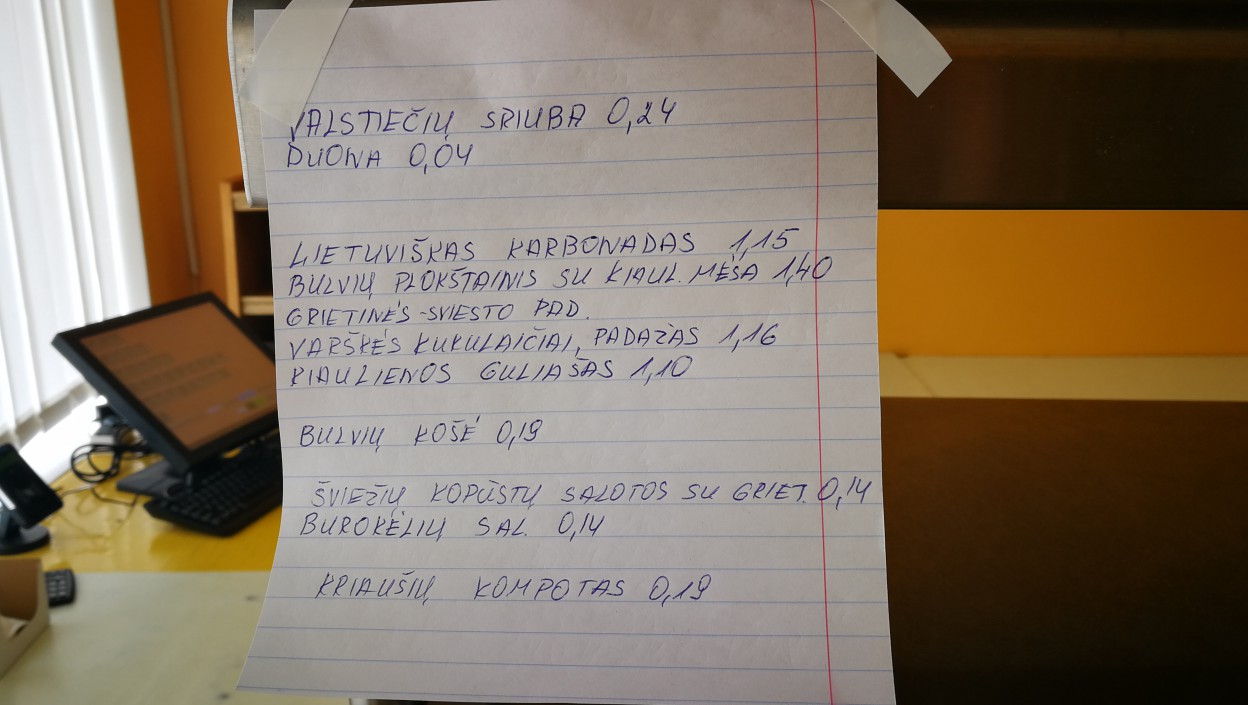 VALSTIEČIŲ SRIUBA 0,24
DUONA 0,04
LIETUVIŠKAS KARBONADAS 1,15
BULVIŲ PLOKŠTAINIS SU KIAUL. MĖSA 1,40
GRIETINĖS-SVIESTO PAD.
VARŠKĖS KUKULAIČIAI, PADAŽAS 1,16
KIAULIENOS GULIAŠAS 1,10
BULVIŲ KOŠĖ 0,19
ŠVIEŽIŲ KOPŪSTŲ SALOTOS SU GRIET. 0,14
BUROKĖLIŲ SAL. 0,14
KRIAUŠIŲ KOMPOTAS 0,19